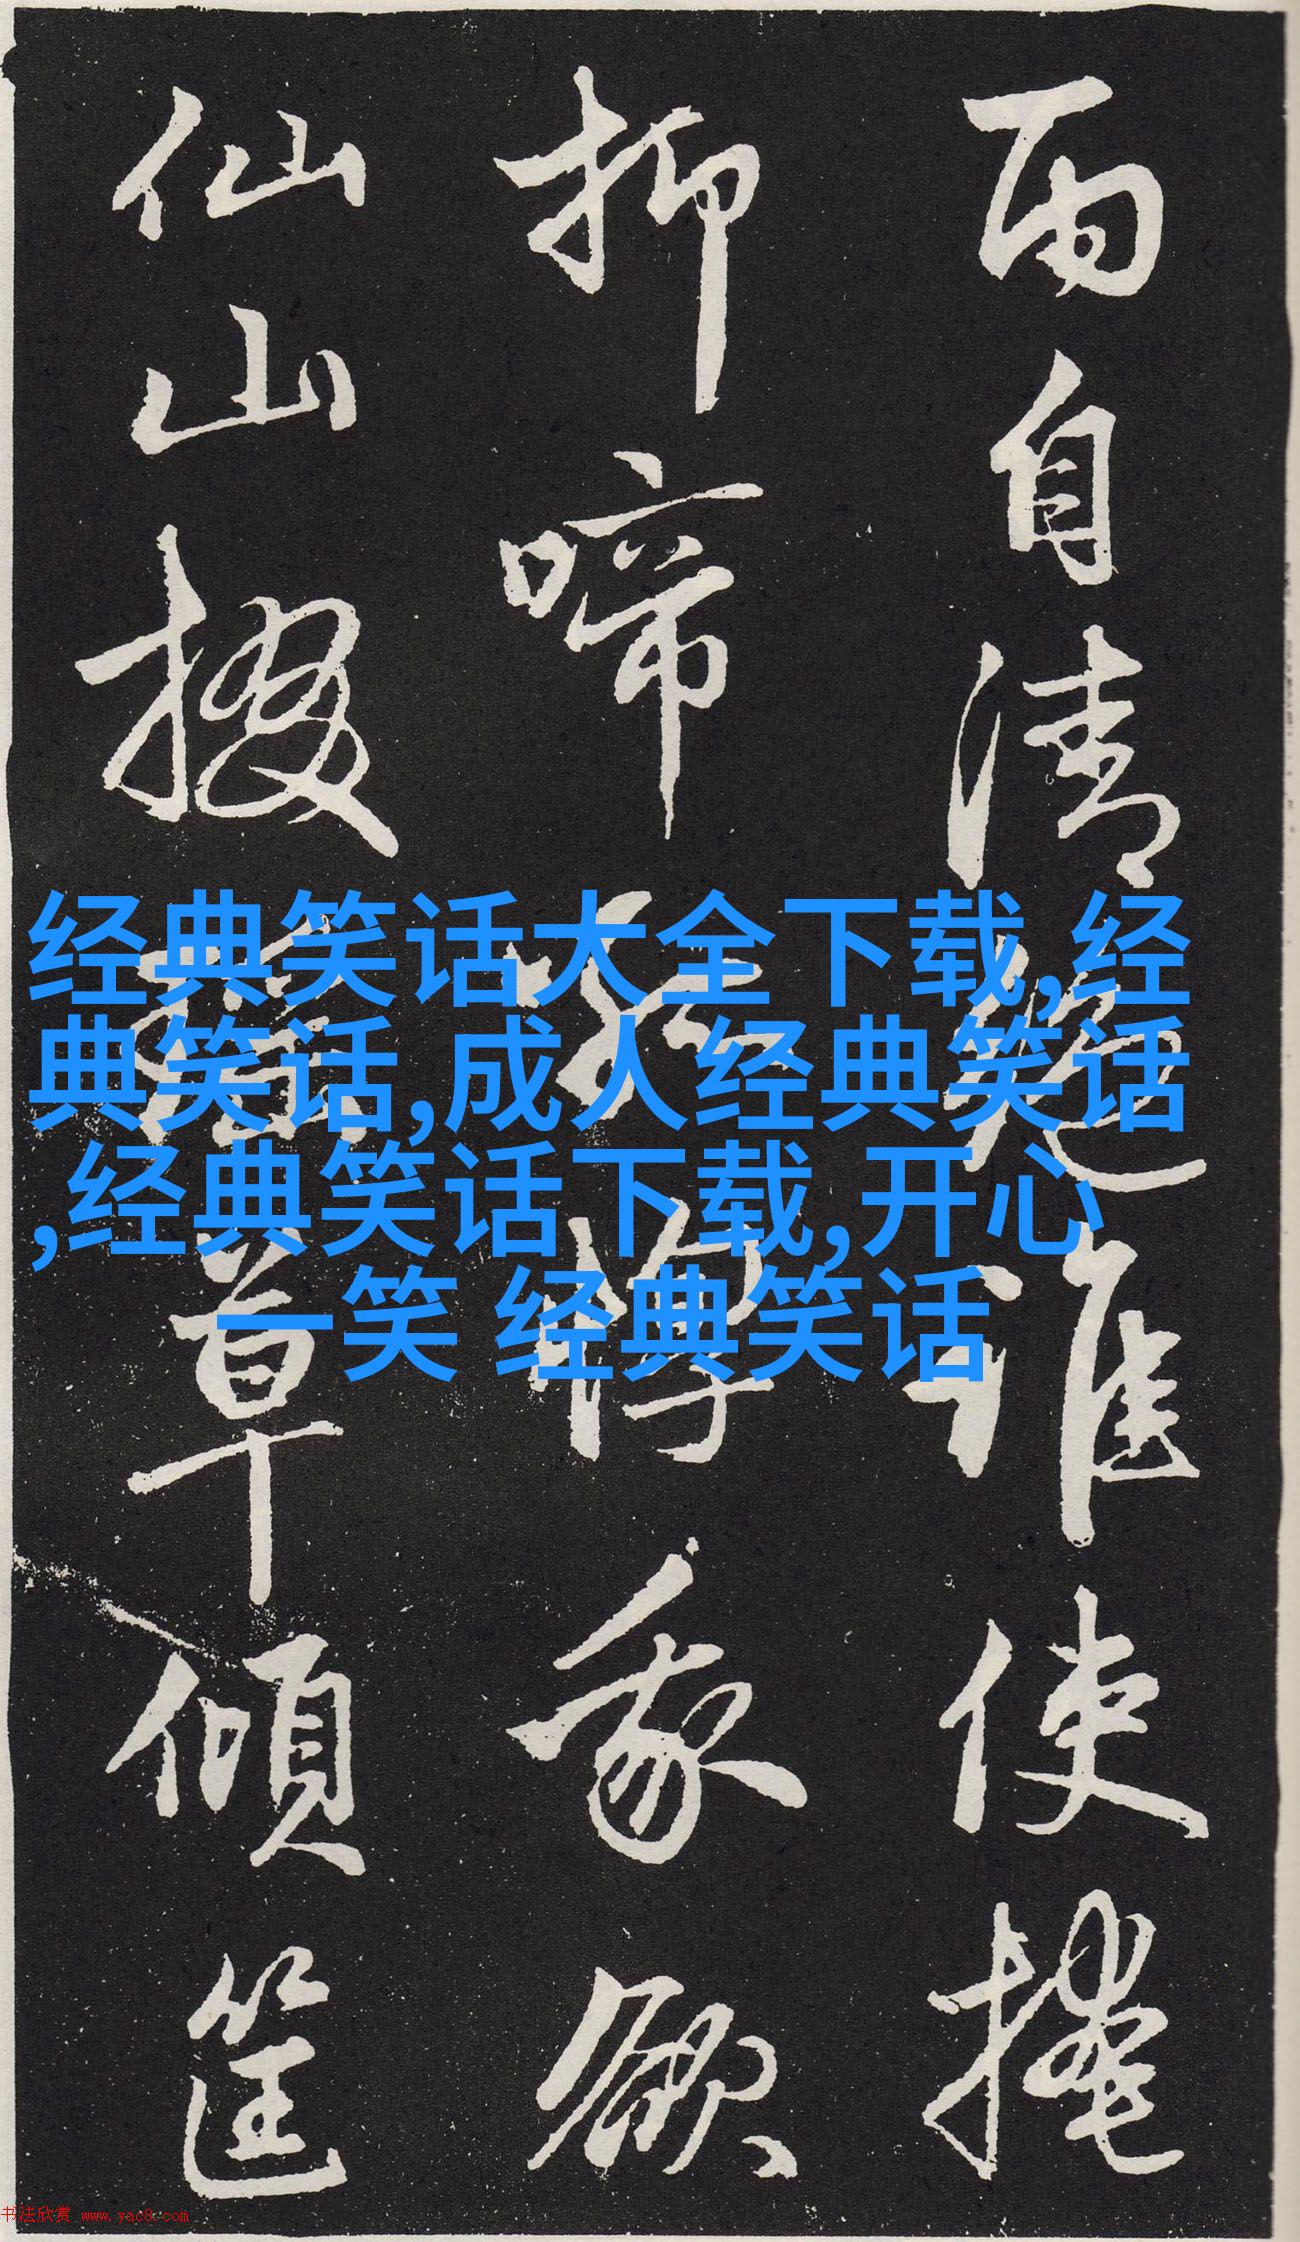 雨自清絕誰使掩
抑啼孤惸我欲
仙山掇瑤草傾筐
经典笑话大全下载,经
典笑话,成人经典笑话
,经典笑话下载,开心
一笑 经典笑话
书法欣赏 www.yac8.com